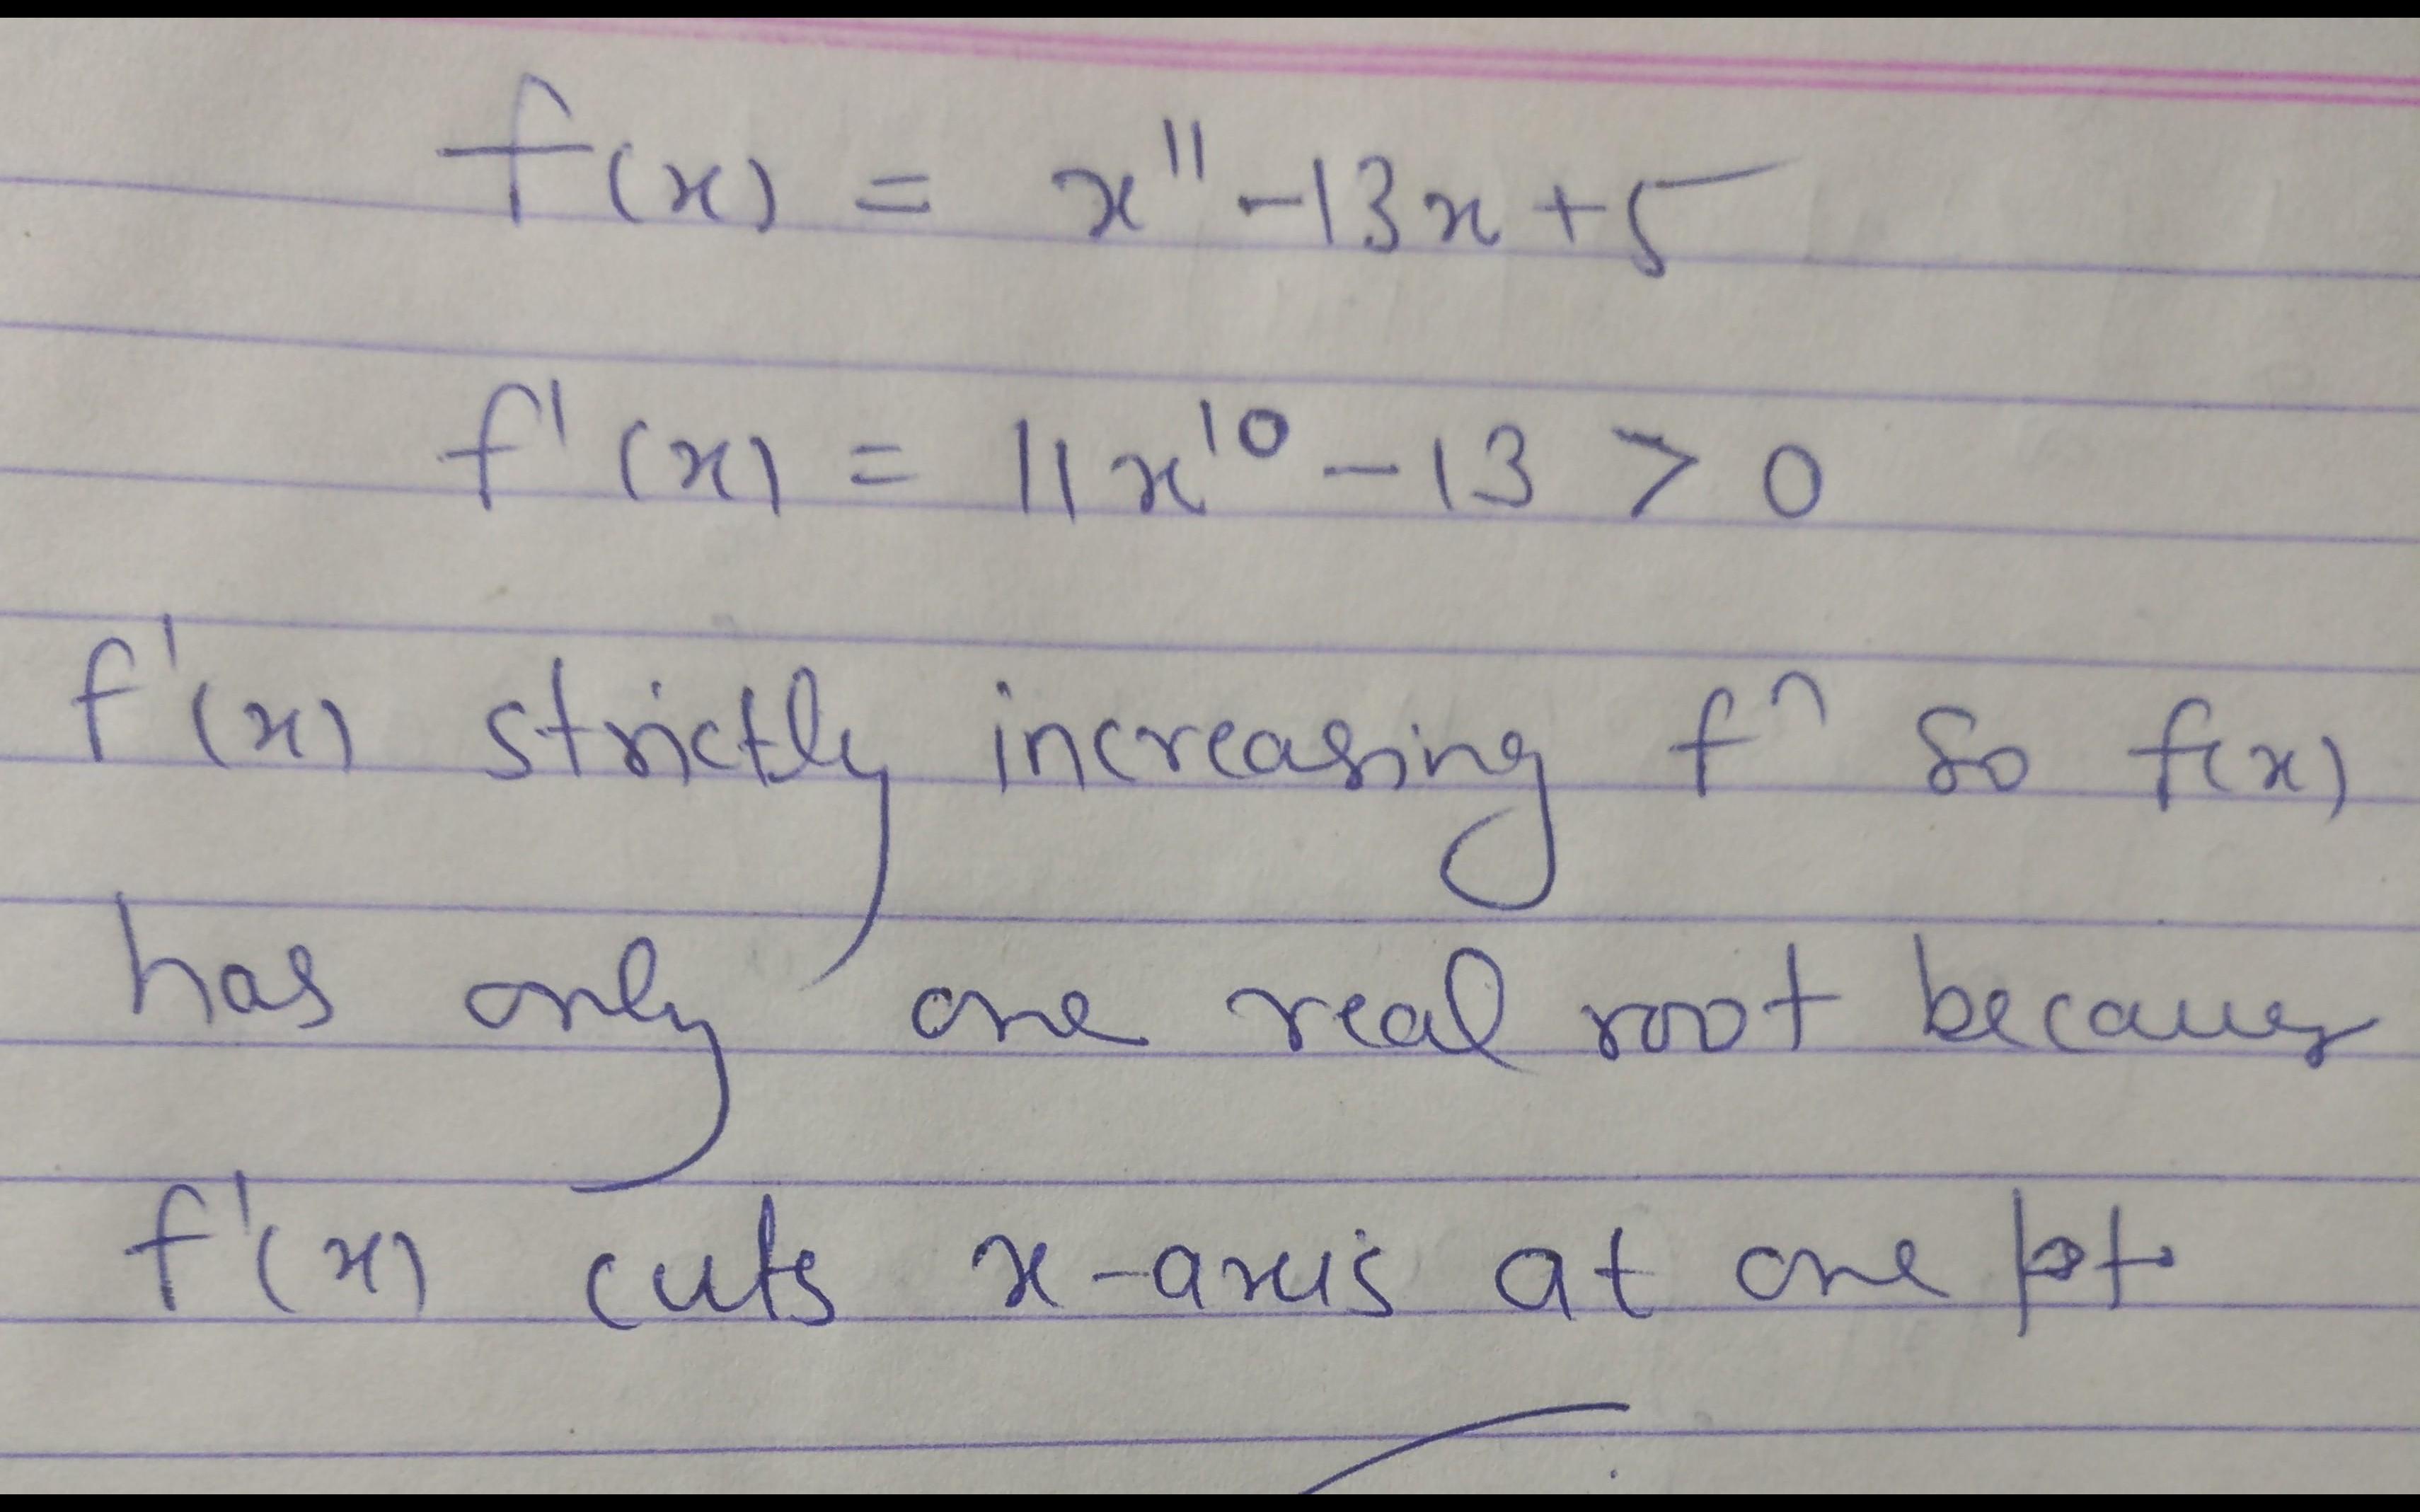 f(x) = x¹¹ -13x +5
f'(x) = 11x¹⁰ - 13 > 0
f'(x) strictly increasing fⁿ So f(x)
has only one real root because
f'(x) cuts x-axis at one pt.